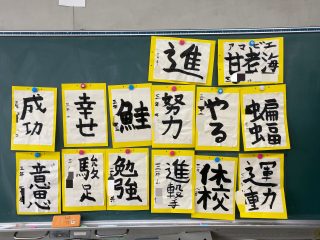 進
甘老海
成功
幸せ
鮭
努力
やる
蝙蝠
駿足
勉強
進撃
休校
運動